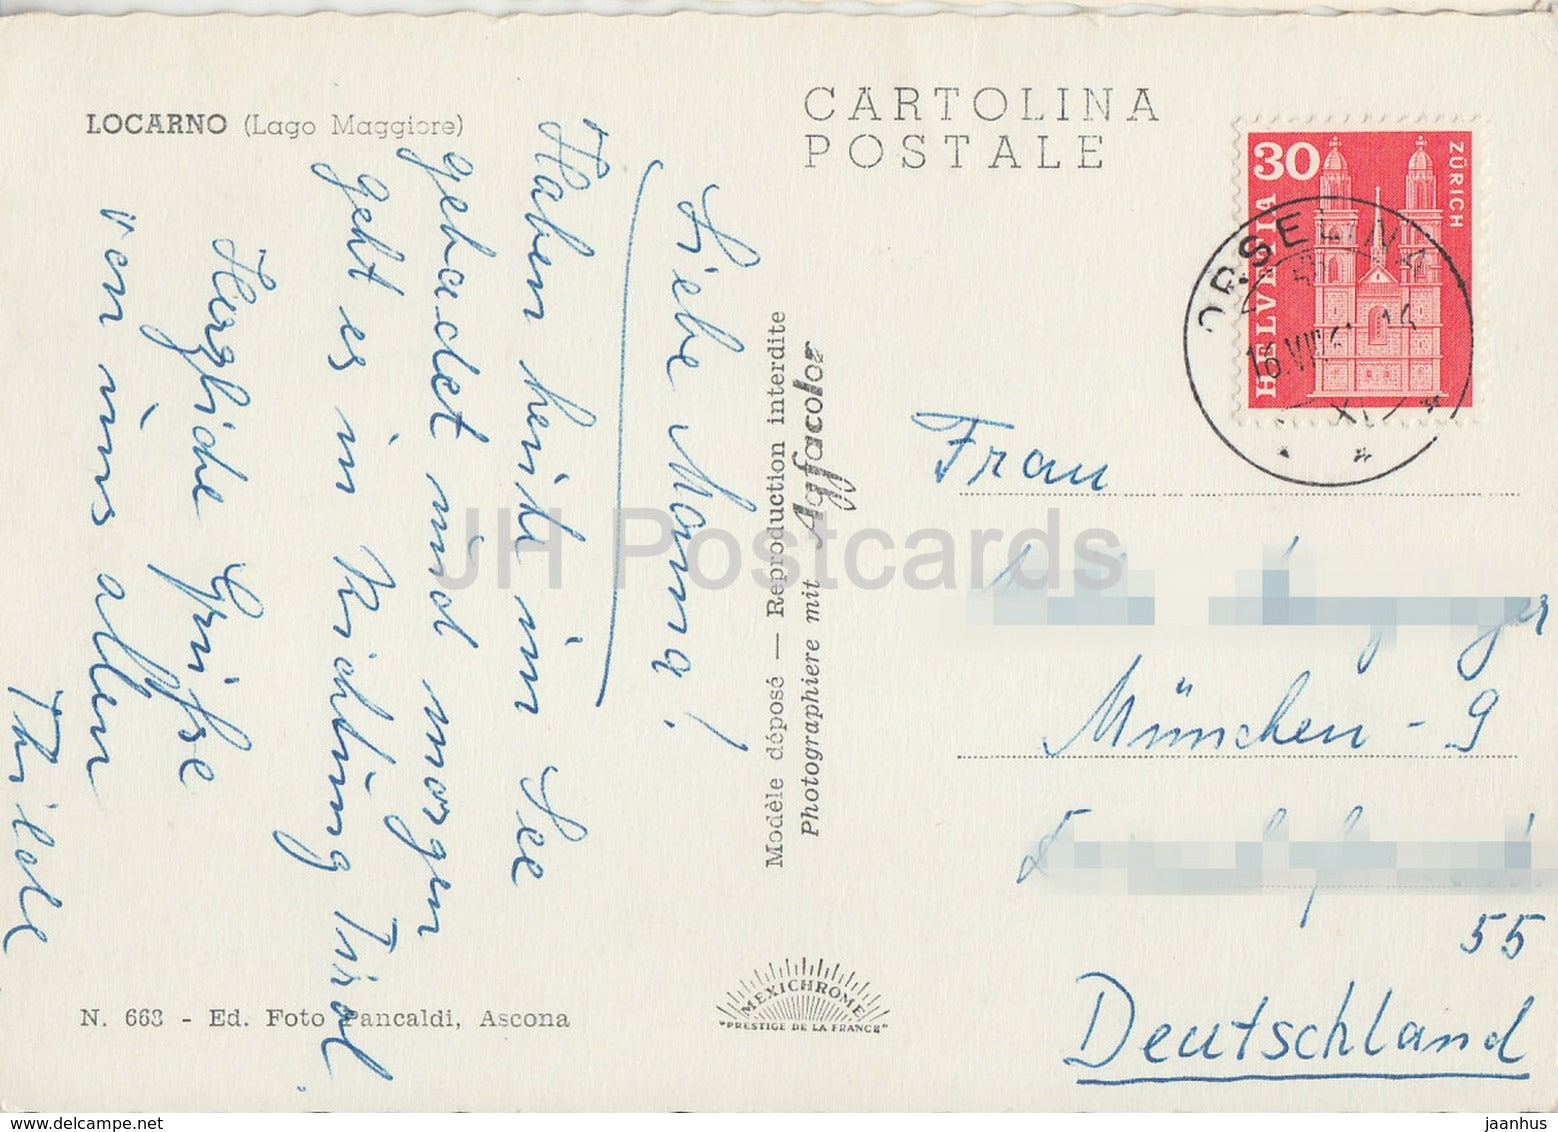 LOCARNO (Lago Maggiore)
CARTOLINA
POSTALE
30
ZÜRICH
HELVETIA
ORSELINA
16.VIII.61
Liebe Mama!
Haben heute im See
gebadet und morgen
geht es in Richtung Tirol.
Herzliche Grüsse
von uns allen
Thilde
Modèle déposé — Reproduction interdite
Photographiere mit Agfacolor
Frau
München - 9
55
Deutschland
MEXICHROME
"PRESTIGE DE LA FRANCE"
N. 663 - Ed. Foto Pancaldi, Ascona
JH Postcards
delcampe.net
jaanhus